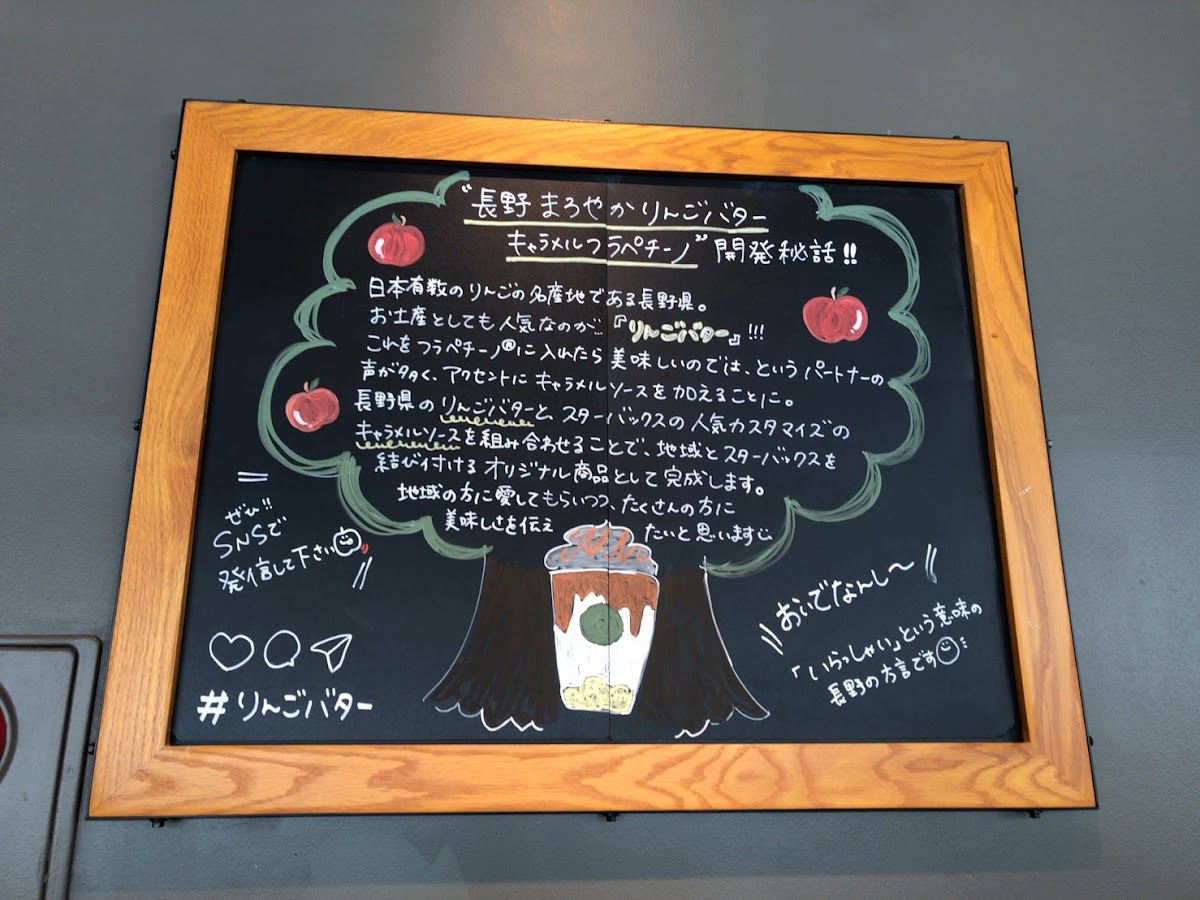 “長野 まろやか りんごバター
キャラメルフラペチーノ” 開発秘話!!
日本有数のりんごの名産地である長野県。
お土産としても人気なのが『りんごバター』!!!
これをフラペチーノ®に入れたら美味しいのでは、というパートナーの
声が多く、アクセントにキャラメルソースを加えることに。
長野県のりんごバターと、スターバックスの人気カスタマイズの
キャラメルソースを組み合わせることで、地域とスターバックスを
結び付けるオリジナル商品として完成します。
地域の方に愛してもらいつつ、たくさんの方に
美味しさを伝えたいと思います
ぜひ!!
SNSで
発信して下さい
#りんごバター
おいでなんし〜
「いらっしゃい」という意味の
長野の方言です